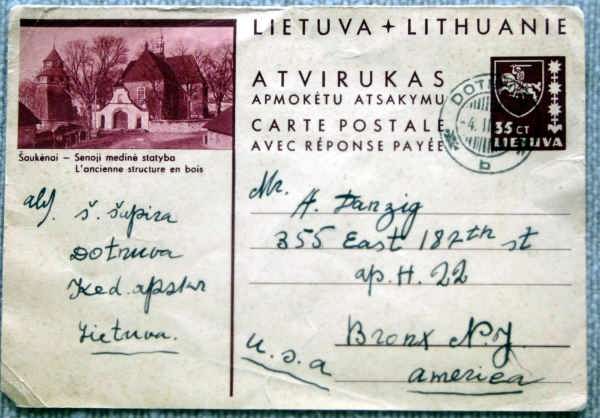 LIETUVA + LITHUANIE
ATVIRUKAS
APMOKĖTU ATSAKYMU
CARTE POSTALE
AVEC RÉPONSE PAYÉE
35 CT
LIETUVA
DOT
-4. II
b
Šaukėnai – Senoji medinė statyba
L'ancienne structure en bois
Š. Šapira
Dotnuva
Ked. apskr
Lietuva.
Mr. H. Danzig
355 East 187th st
ap. H. 22
Bronx N.Y.
U.S.A
America